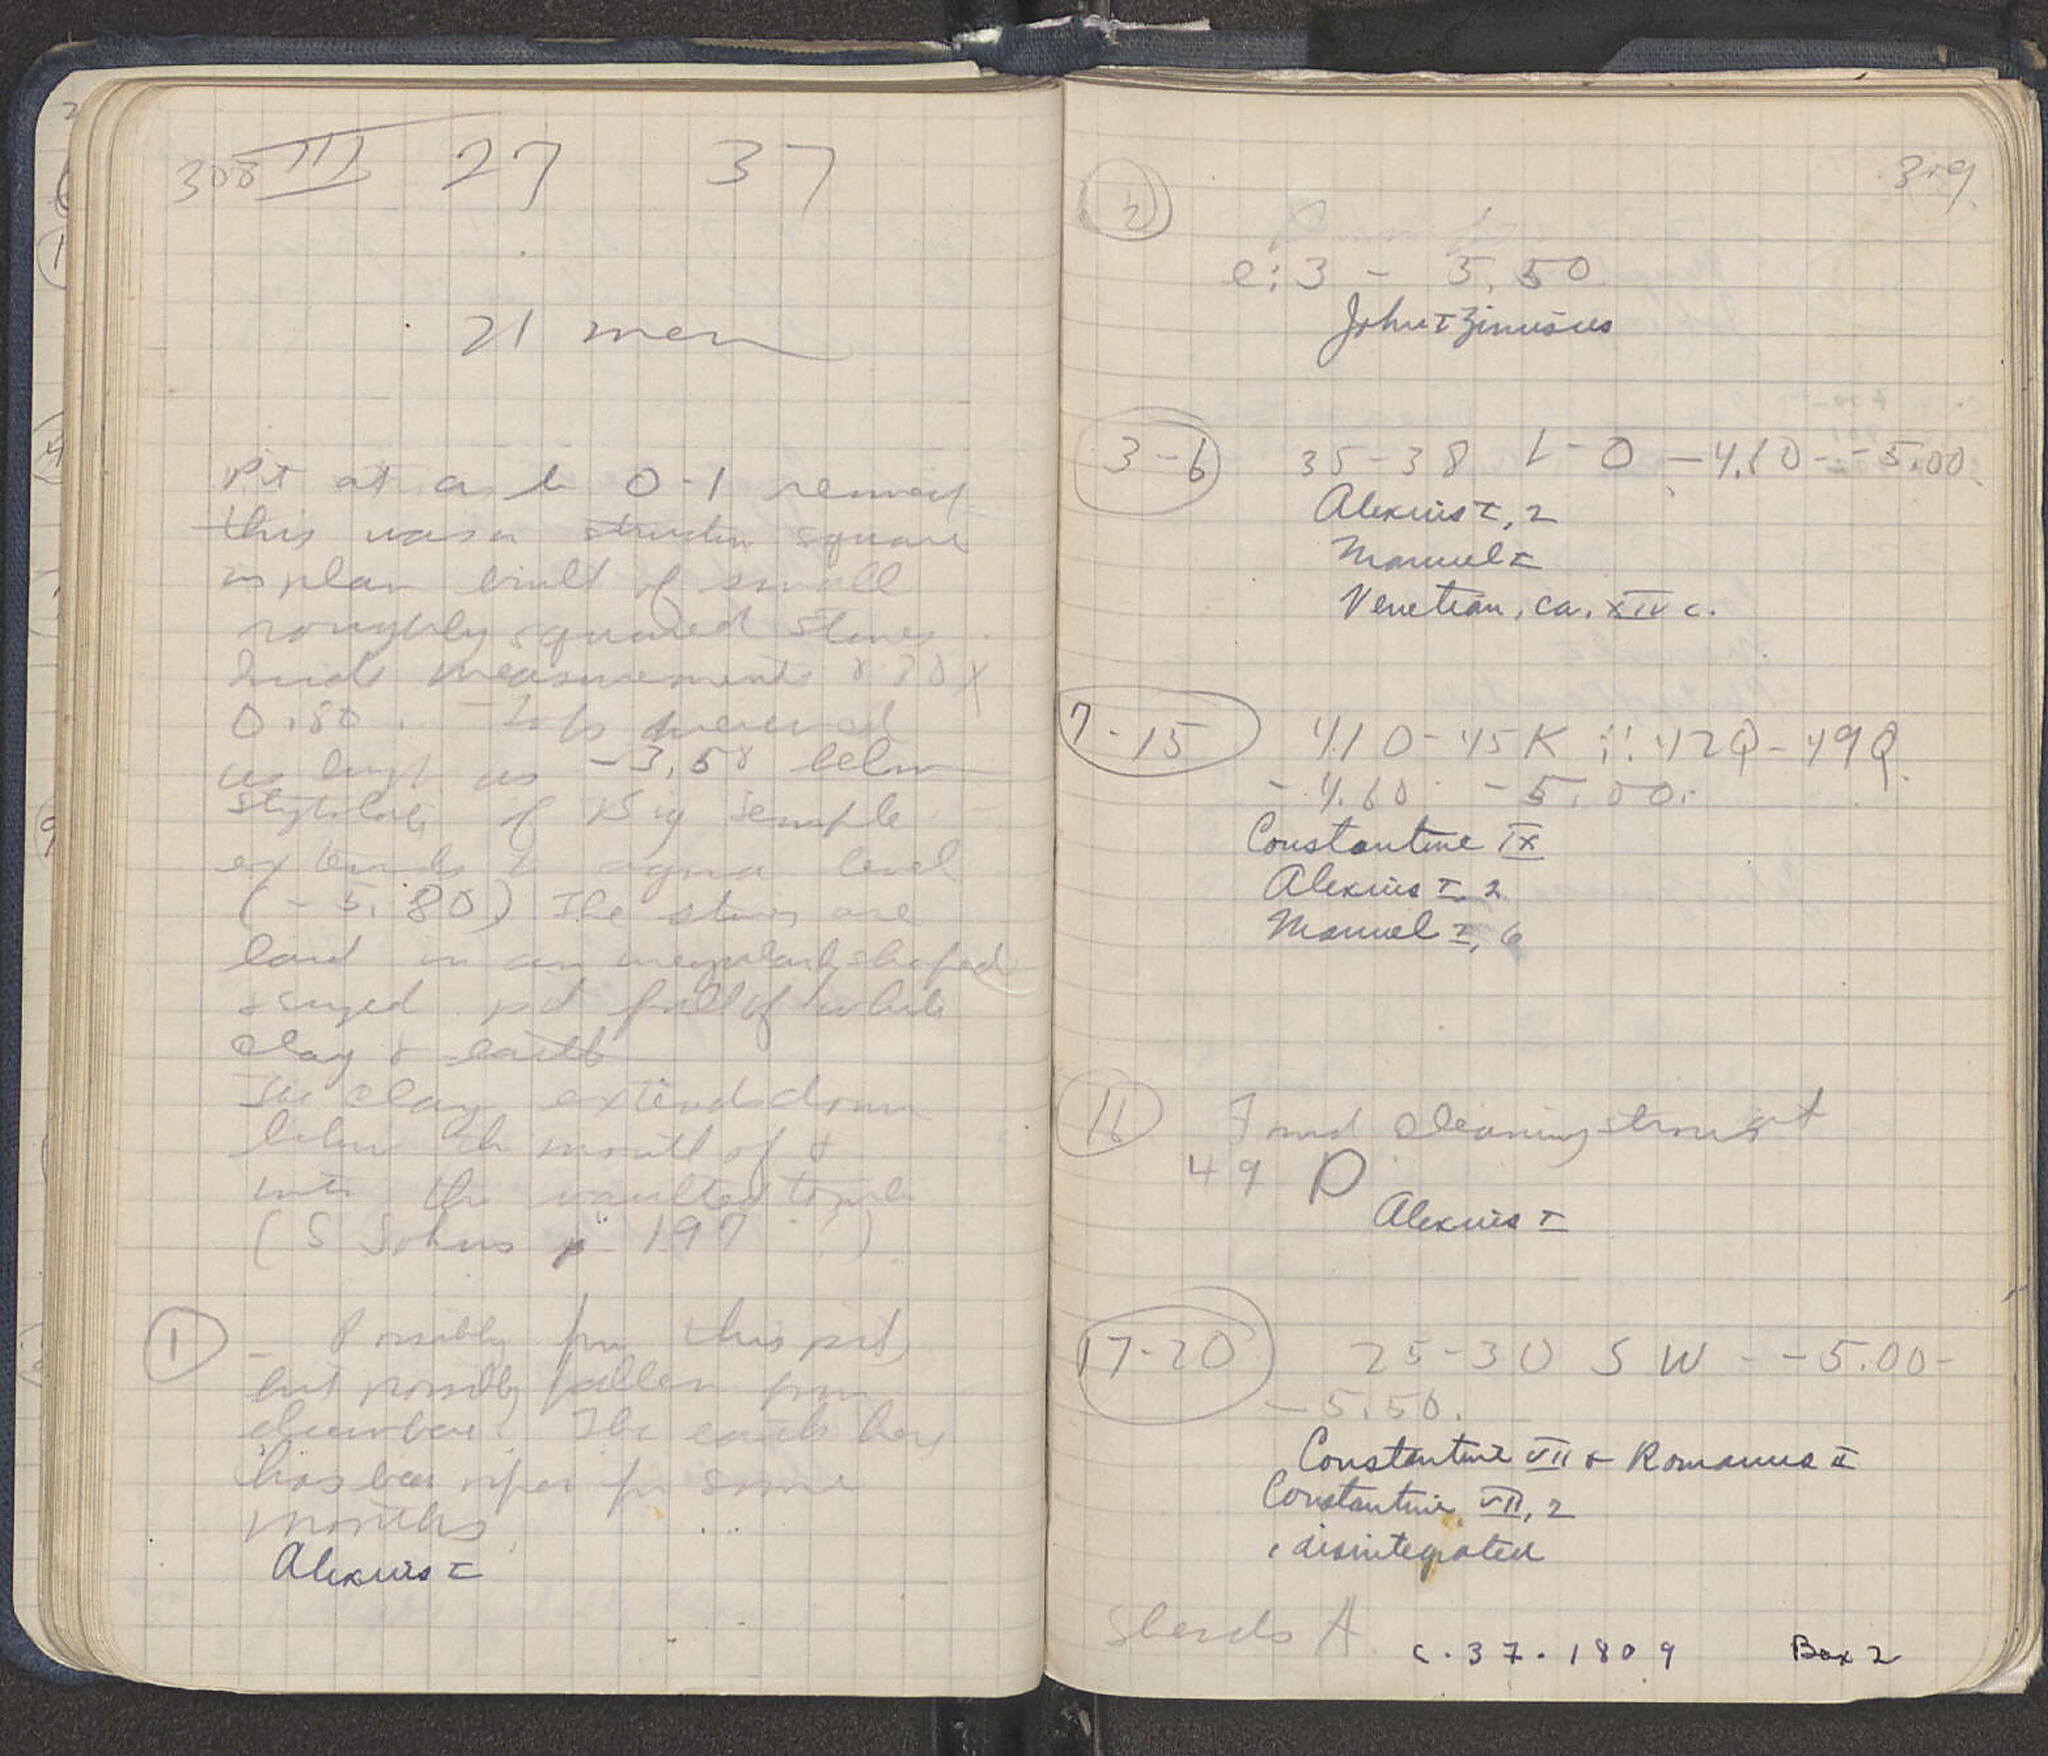 308 III 27 37
21 men
Pit at a, b 0-1 removed
this was a structure square
in plan built of small
roughly squared stones.
Inside measurements 0.70 x
0.50. Top preserved
as high as -3,50 below
stylobate of Big temple
extends to agora level
(-5.80) The stones are
laid in an irregularly shaped
& sized pit full of white
clay & earth
The clay extends down
below the mouth of &
into the vaulted tomb
(S Johns p 197 )
1 Possibly from this pit,
but possibly fallen from
elsewhere. The earth here
has been open for some
months.
Alexius I
309
2
e: 3 - 5.50
John I Zimisces
3-6 35-38 L-O -4.60 - -5.00
Alexius I, 2
Manuel I
Venetian, ca. XIV c.
7-15 41 O - 45 K ; 42 Q - 49 Q
-4.60 -5.00.
Constantine IX
Alexius I 2
Manuel I, 6
16 Found cleaning at
49 P
Alexius I
17-20 25-30 S W - -5.00-
-5.50.
Constantine VII & Romanus II
Constantine VII, 2
1 disintegrated
Sherds A C.37.1809 Box 2